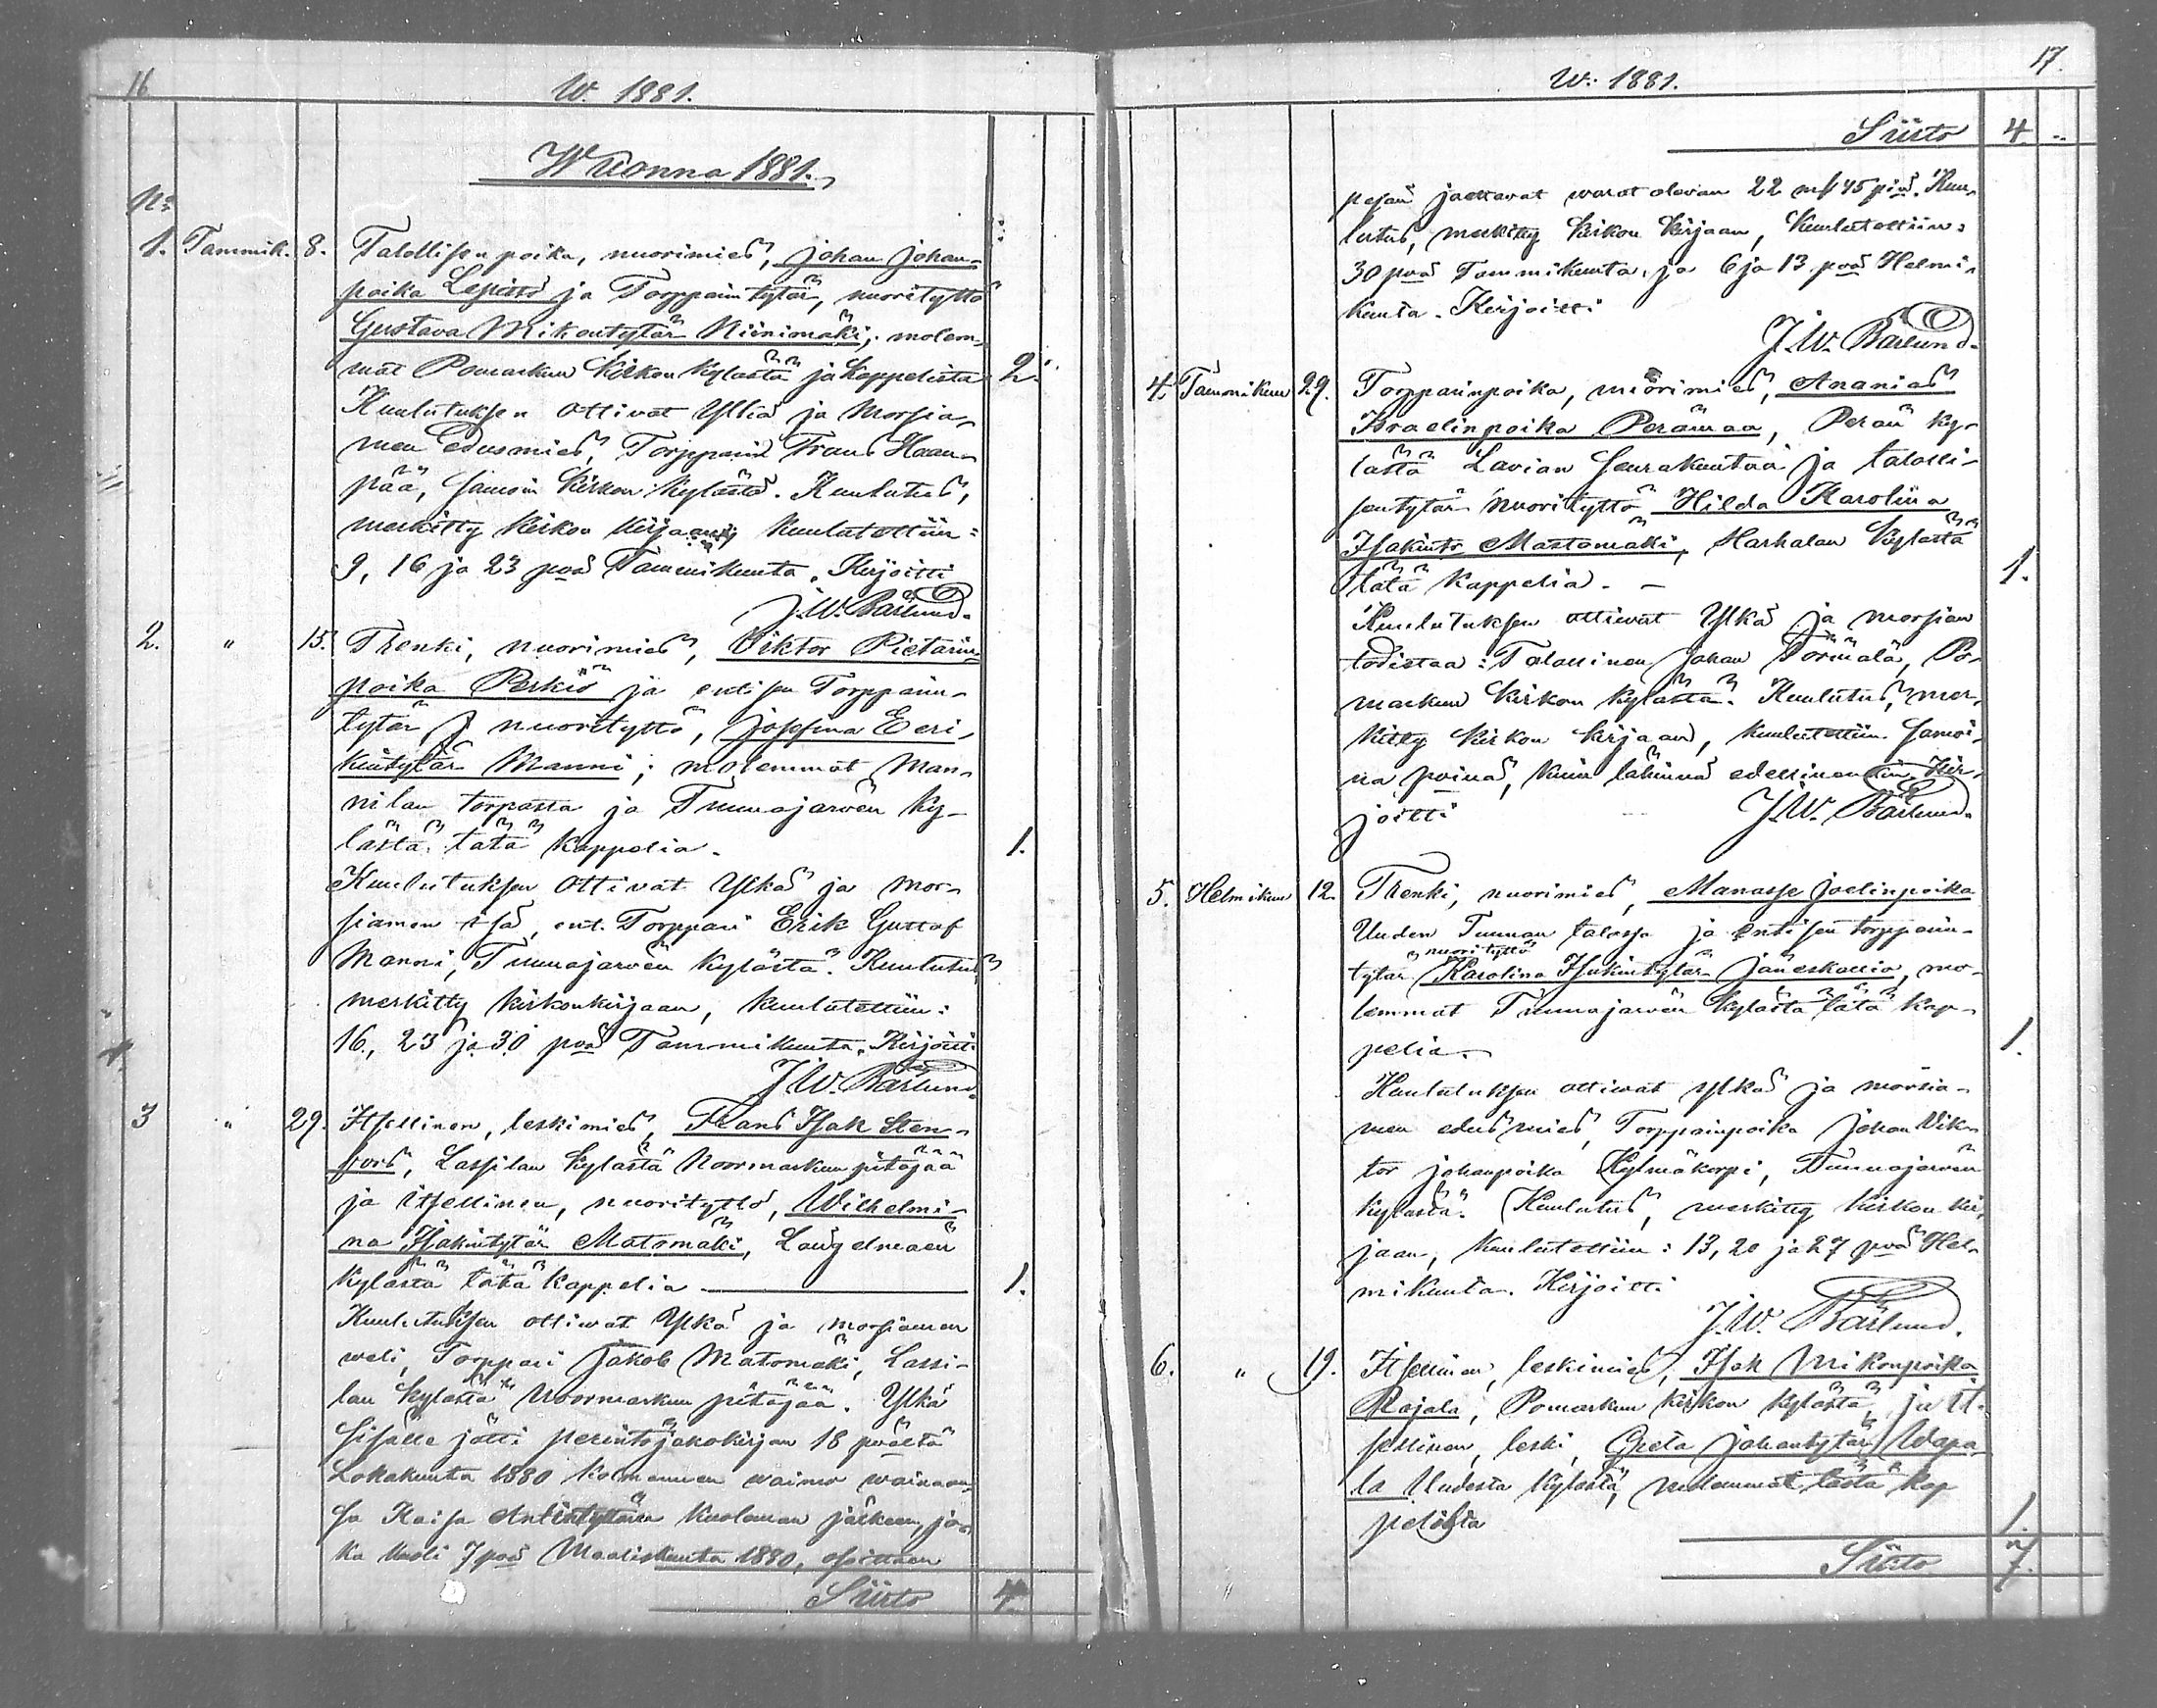 16
W. 1881.
Wuonna 1881.
No
1. Tammik. 8. Talollisen poika, nuorimies, Johan Johan-
poika Lepistö ja Torpparintytär, nuorityttö
Gustava Mikontytär Niinimäki, molem-
mat Pomarkun Kirkon kylästä ja Kappelista 2.
Kuulutuksen ottivat Ylkä ja Morsia-
men Edusmies, Torppari Frans Haan-
pää, samoin Kirkon kylästä. Kuulutus,
merkitty Kirkon kirjaan, kuulutettiin:
9, 16 ja 23 pvä Tammikuuta. Kirjoitti
J.W. Bärlund.
2. " 15. Trenki, nuorimies, Viktor Pietarin-
poika Perkiö ja entisen Torpparin-
tytär nuorityttö, Josefina Eeri-
kintytär Manni; molemmat Man-
nilan torpasta ja Tuunajarwen ky-
lästä tätä Kappelia. 1.
Kuulutuksen ottivat Ylkä ja mor-
siamen isä, ent. Torppari Erik Gustaf
Manni, Tuunajarwen kylästä. Kuulutus
merkitty kirkonkirjaan, kuulutettiin:
16., 23 ja 30 pvä Tammikuuta. Kirjoitti
J.W. Bärlund.
3 " 29. Itsellinen, leskimies, Frans Isak Sten-
fors, Lassilan kylästä Noormarkun pitäjää
ja itsellinen, nuorityttö, Wilhelmi-
na Isakintytär Matomäki, Längelmäen
kylästä tätä kappelia. 1.
Kuulutuksen ottivat Ylkä ja morsiamen
weli, Torppari Jakob Matomäki, Lassi-
lan kylästä Noormarkun pitäjää. Ylkä
sisälle jätti perintöjakokirjan 18 pvältä
Lokakuuta 1880 kolmannen waimo wainaan-
sa Kaisa Antintyttären kuoleman jälkeen, jo-
ka kuoli 7 pvä Maaliskuuta 1880, osittaen
Siirto 4.
17.
W: 1881.
Siirto 4. "
pesän jaettavat warat olevan 22 mk 45 piä. Kuu-
lutus, merkitty kirkon kirjaan, kuulutettiin:
30 pvä Tammikuuta, ja 6 ja 13 pvä Helmi-
kuuta. Kirjoitti
J.W. Bärlund.
4. Tammikuu 29. Torpparinpoika, nuorimies, Ananias
Israelinpoika Perämaa, Perän ky-
lästä Lavian seurakuntaa ja talolli-
sentytär nuorityttö Hilda Karoliina
Isakint. Mastomäki, Harhalan kylästä
tätä kappelia. - 1.
Kuulutuksen ottiwat Ylkä ja morsian
todistaa: Talollinen Johan Törmälä, Po-
markun Kirkon kylästä. Kuulutus, mer-
kitty kirkon kirjaan, kuulutettiin samoi-
na päivinä, kuin lähinnä edellinenkin. Kir-
joitti J.W. Bärlund.
5. Helmikuu 12. Trenki, nuorimies, Manasse Joelinpoika
Uuden Tuunan talossa ja entisen torpparin-
nuorityttö
tytär Karolina Isakintytär Jäneskallio, mo-
lemmat Tuunajarwen kylästä tätä kap-
pelia. 1.
Kuulutuksen ottiwat ylkä ja morsia-
men edusmies, Torpparinpoika Johan Vik-
tor Johanpoika Kylmäkorpi, Tuunajarwen
kylästä. Kuulutus, merkitty kirkon kir-
jaan, kuulutettiin: 13, 20 ja 27 pvä Hel-
mikuuta. Kirjoitti
J.W. Bärlund.
6. " 19. Itsellinen, leskimies, Isak Mikonpoika
Rajala, Pomarkun kirkon kylästä, ja it-
sellinen, leski, Greta Johantytär Wapa-
la Uudesta kylästä, molemmat tästä kap
pelista 1.
Siirto 7.